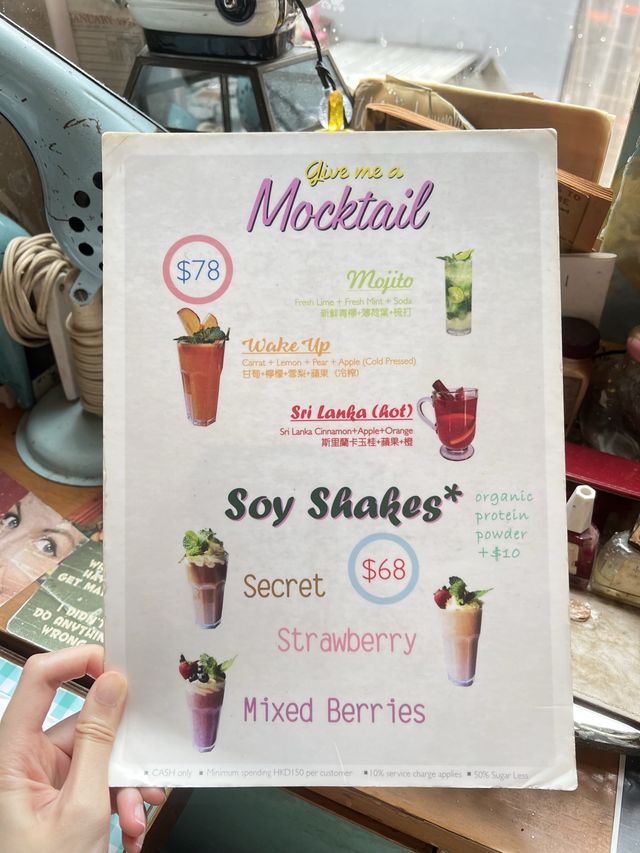 JANUARY
Give me a
Mocktail
$78
Mojito
Fresh Lime + Fresh Mint + Soda
新鮮青檸+薄荷葉+梳打
Wake Up
Carrat + Lemon + Pear + Apple (Cold Pressed)
甘荀+檸檬+雪梨+蘋果 (冷榨)
Sri Lanka (hot)
Sri Lanka Cinnamon+Apple+Orange
斯里蘭卡玉桂+蘋果+橙
Soy Shakes*
organic
protein
powder
+$10
$68
Secret
Strawberry
Mixed Berries
▪ CASH only ▪ Minimum spending HKD150 per customer ▪ 10% service charge applies ▪ 50% Sugar Less
GET
I DIDN'T
DO ANYTHIN
WRONG